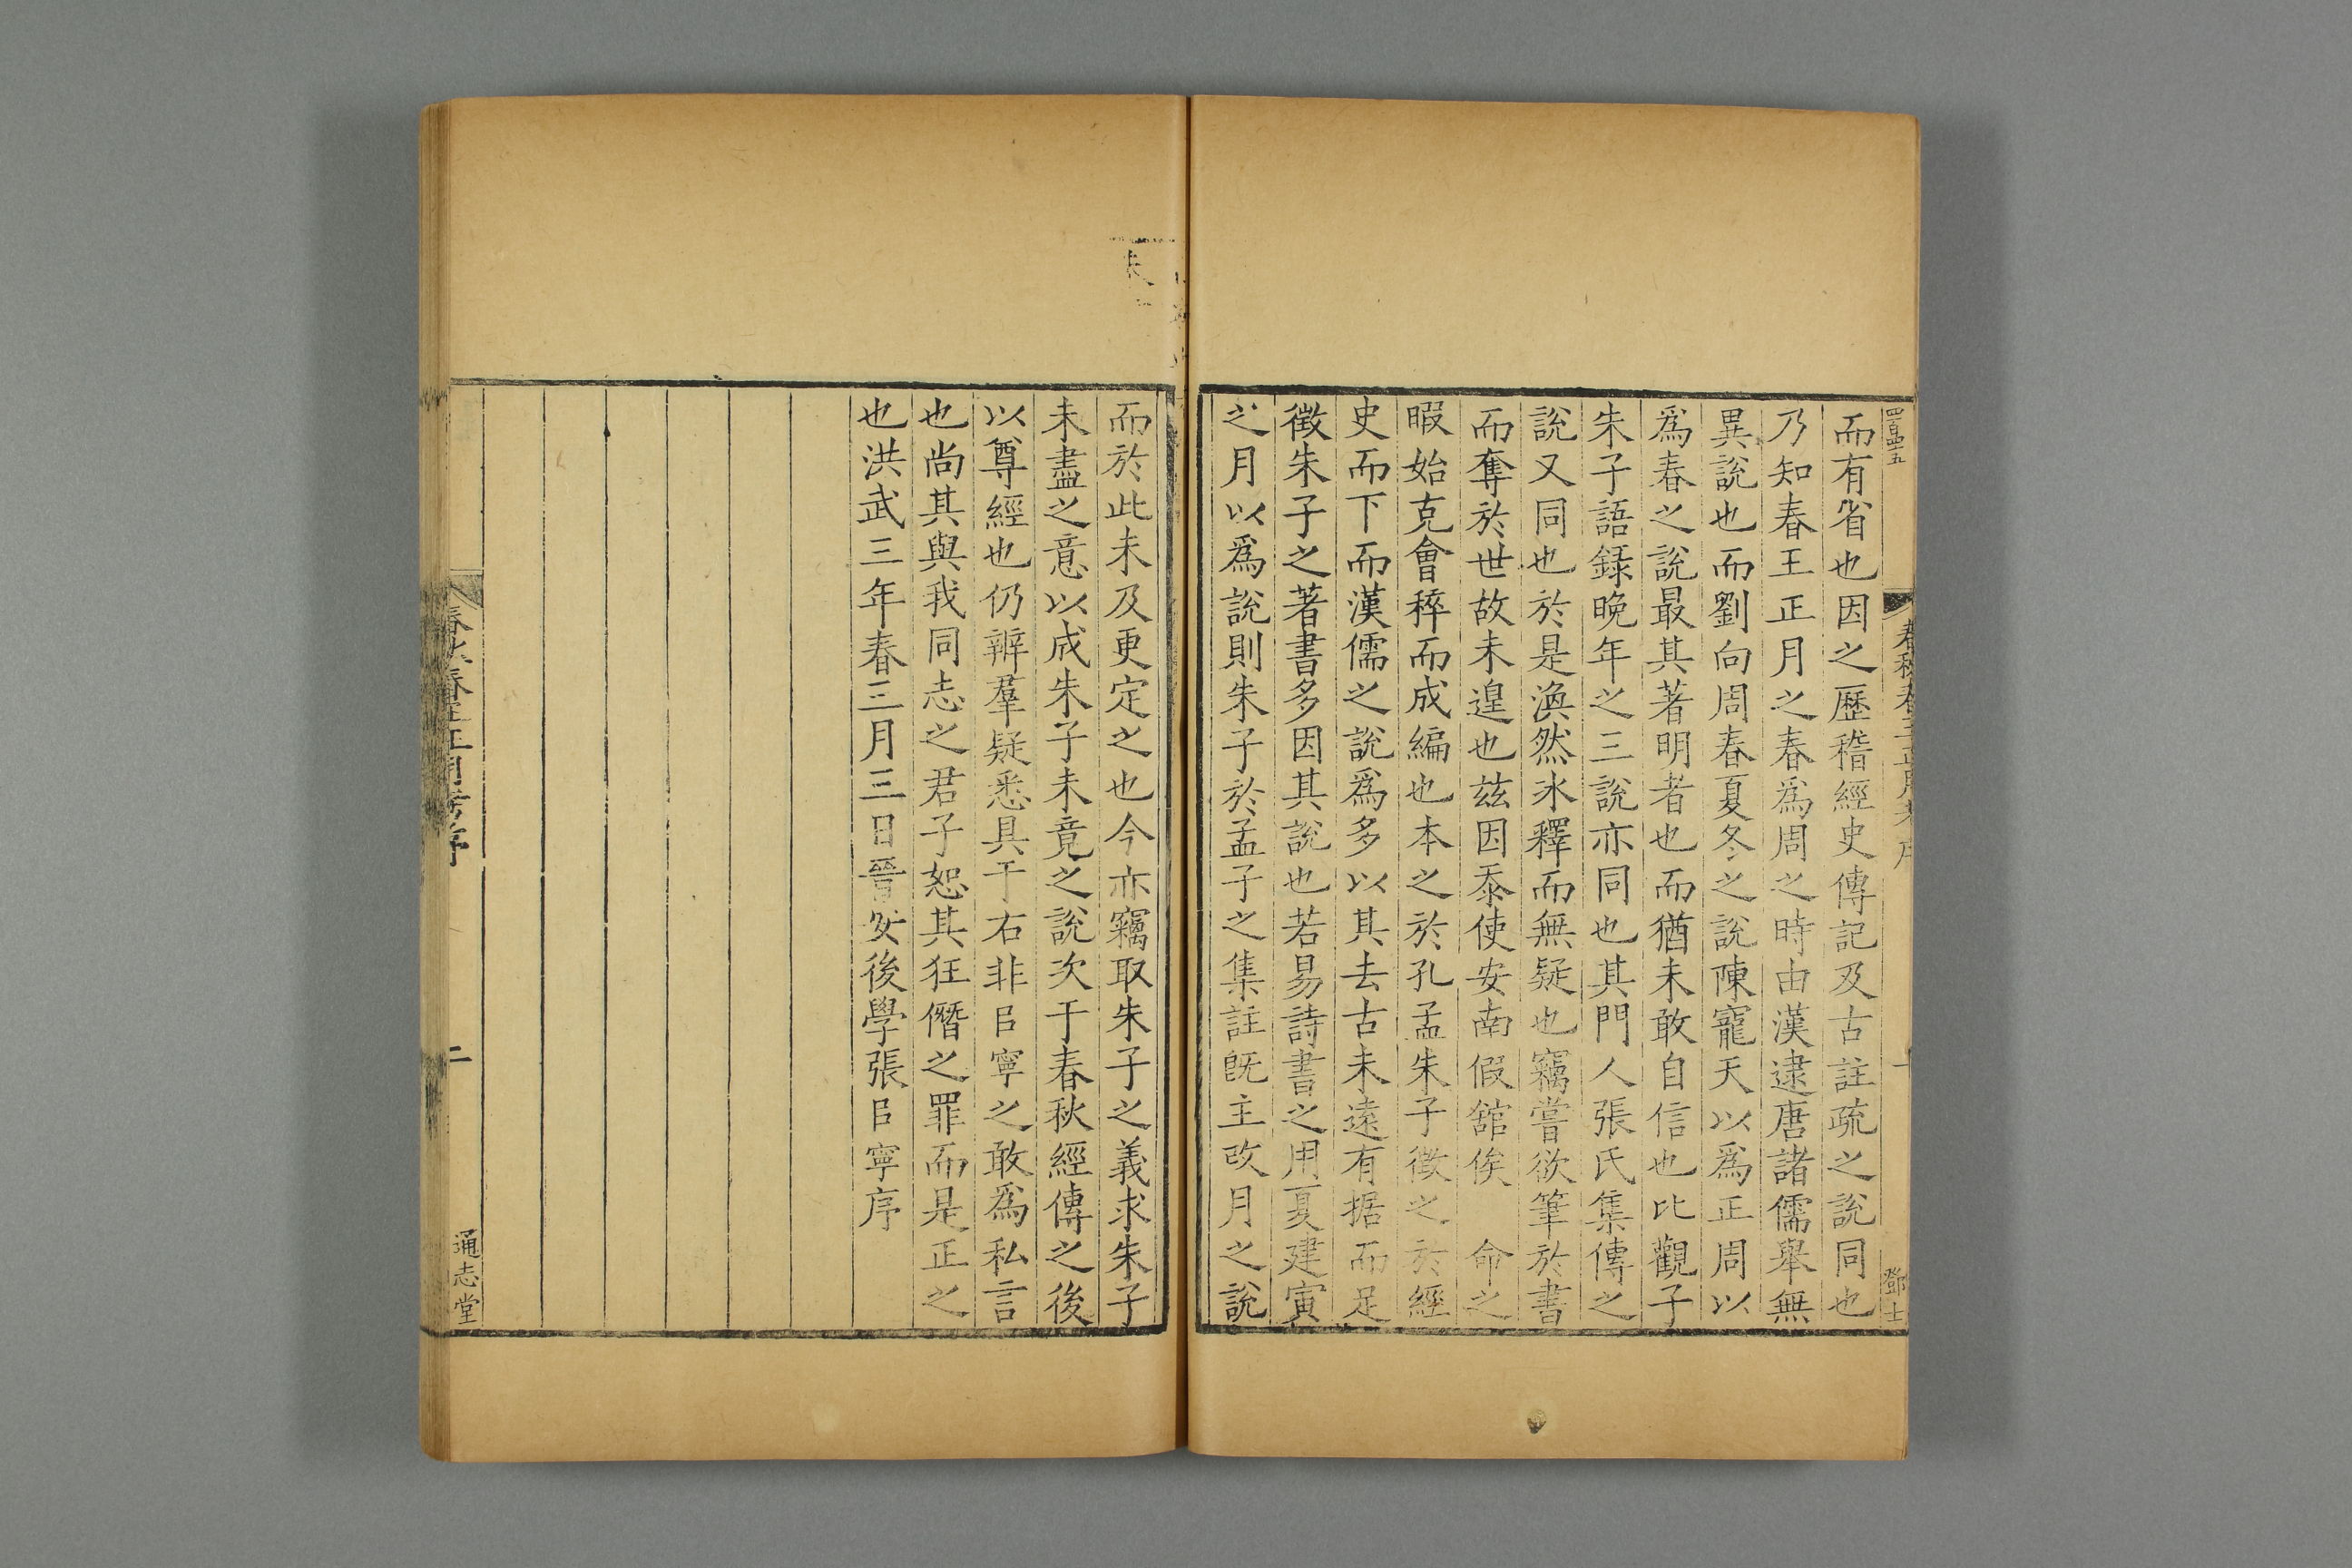 四百四五
春秋春王正月考序
鄧士
而有省也因之歷稽經史傳記及古註疏之說同也
乃知春王正月之春爲周之時由漢逮唐諸儒舉無
異說也而劉向周春夏冬之說陳寵天以爲正周以
爲春之說最其著明者也而猶未敢自信也比觀子
朱子語錄晚年之三說亦同也其門人張氏集傳之
說又同也於是渙然氷釋而無疑也竊嘗欲筆於書
而奪於世故未遑也玆因忝使安南假舘俟 命之
暇始克會稡而成編也本之於孔孟朱子徵之於經
史而下而漢儒之說爲多以其去古未遠有据而足
徵朱子之著書多因其說也若易詩書之用夏建寅
之月以爲說則朱子於孟子之集註旣主改月之說
而於此未及更定之也今亦竊取朱子之義求朱子
未盡之意以成朱子未竟之說次于春秋經傳之後
以尊經也仍辨羣疑悉具于右非㠯寧之敢爲私言
也尚其與我同志之君子恕其狂僭之罪而是正之
也洪武三年春三月三日晉安後學張㠯寧序
春秋春王正月考序
二
通志堂